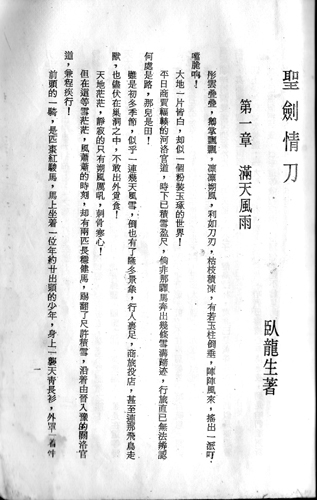 聖劍情刀
臥龍生著
第一章　滿天風雨
彤雲疊疊，鵝掌飄飄，凛凛朔風，利如刀刃，枯枝積凍，有若玉柱倒垂，陣陣風來，搖出一派叮
噹脆响！
大地一片皆白，却似一個粉裝玉琢的世界！
平日商賈輻輳的河洛官道，時下已積雪盈尺，倘非那驛馬奔出幾條雪溝踏迹，行旅直已無法辨認
何處是路，那兒是田！
雖是初冬季節，似乎一連幾天風雪，倒也有了隆冬景象，行人裹足，商旅投店，甚至連那飛鳥走
獸，也儘伏在巢洞之中，不敢出外覓食！
天地茫茫，靜寂的只有朔風厲吼，刺骨寒心！
但在這等雪茫茫，風蕭蕭的時刻，却有兩匹長程健馬，踢翻了尺許積雪，沿着由晉入豫的關洛官
道，兼程疾行！
前頭的一騎，是匹棗紅駿馬，馬上坐着一位年約廿出頭的少年，身上一襲天青長衫，外罩一
一